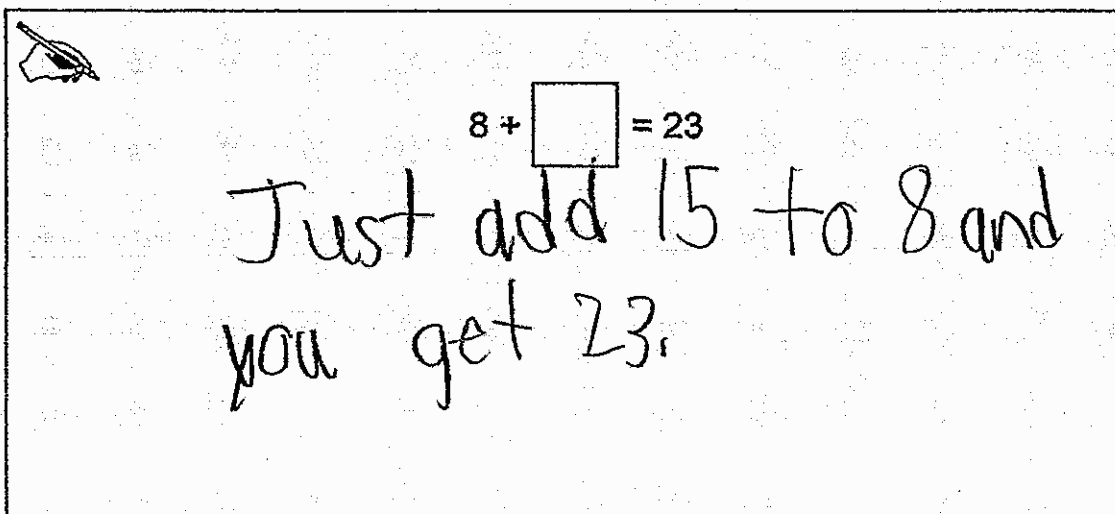 8 + = 23
Just add 15 to 8 and
you get 23.